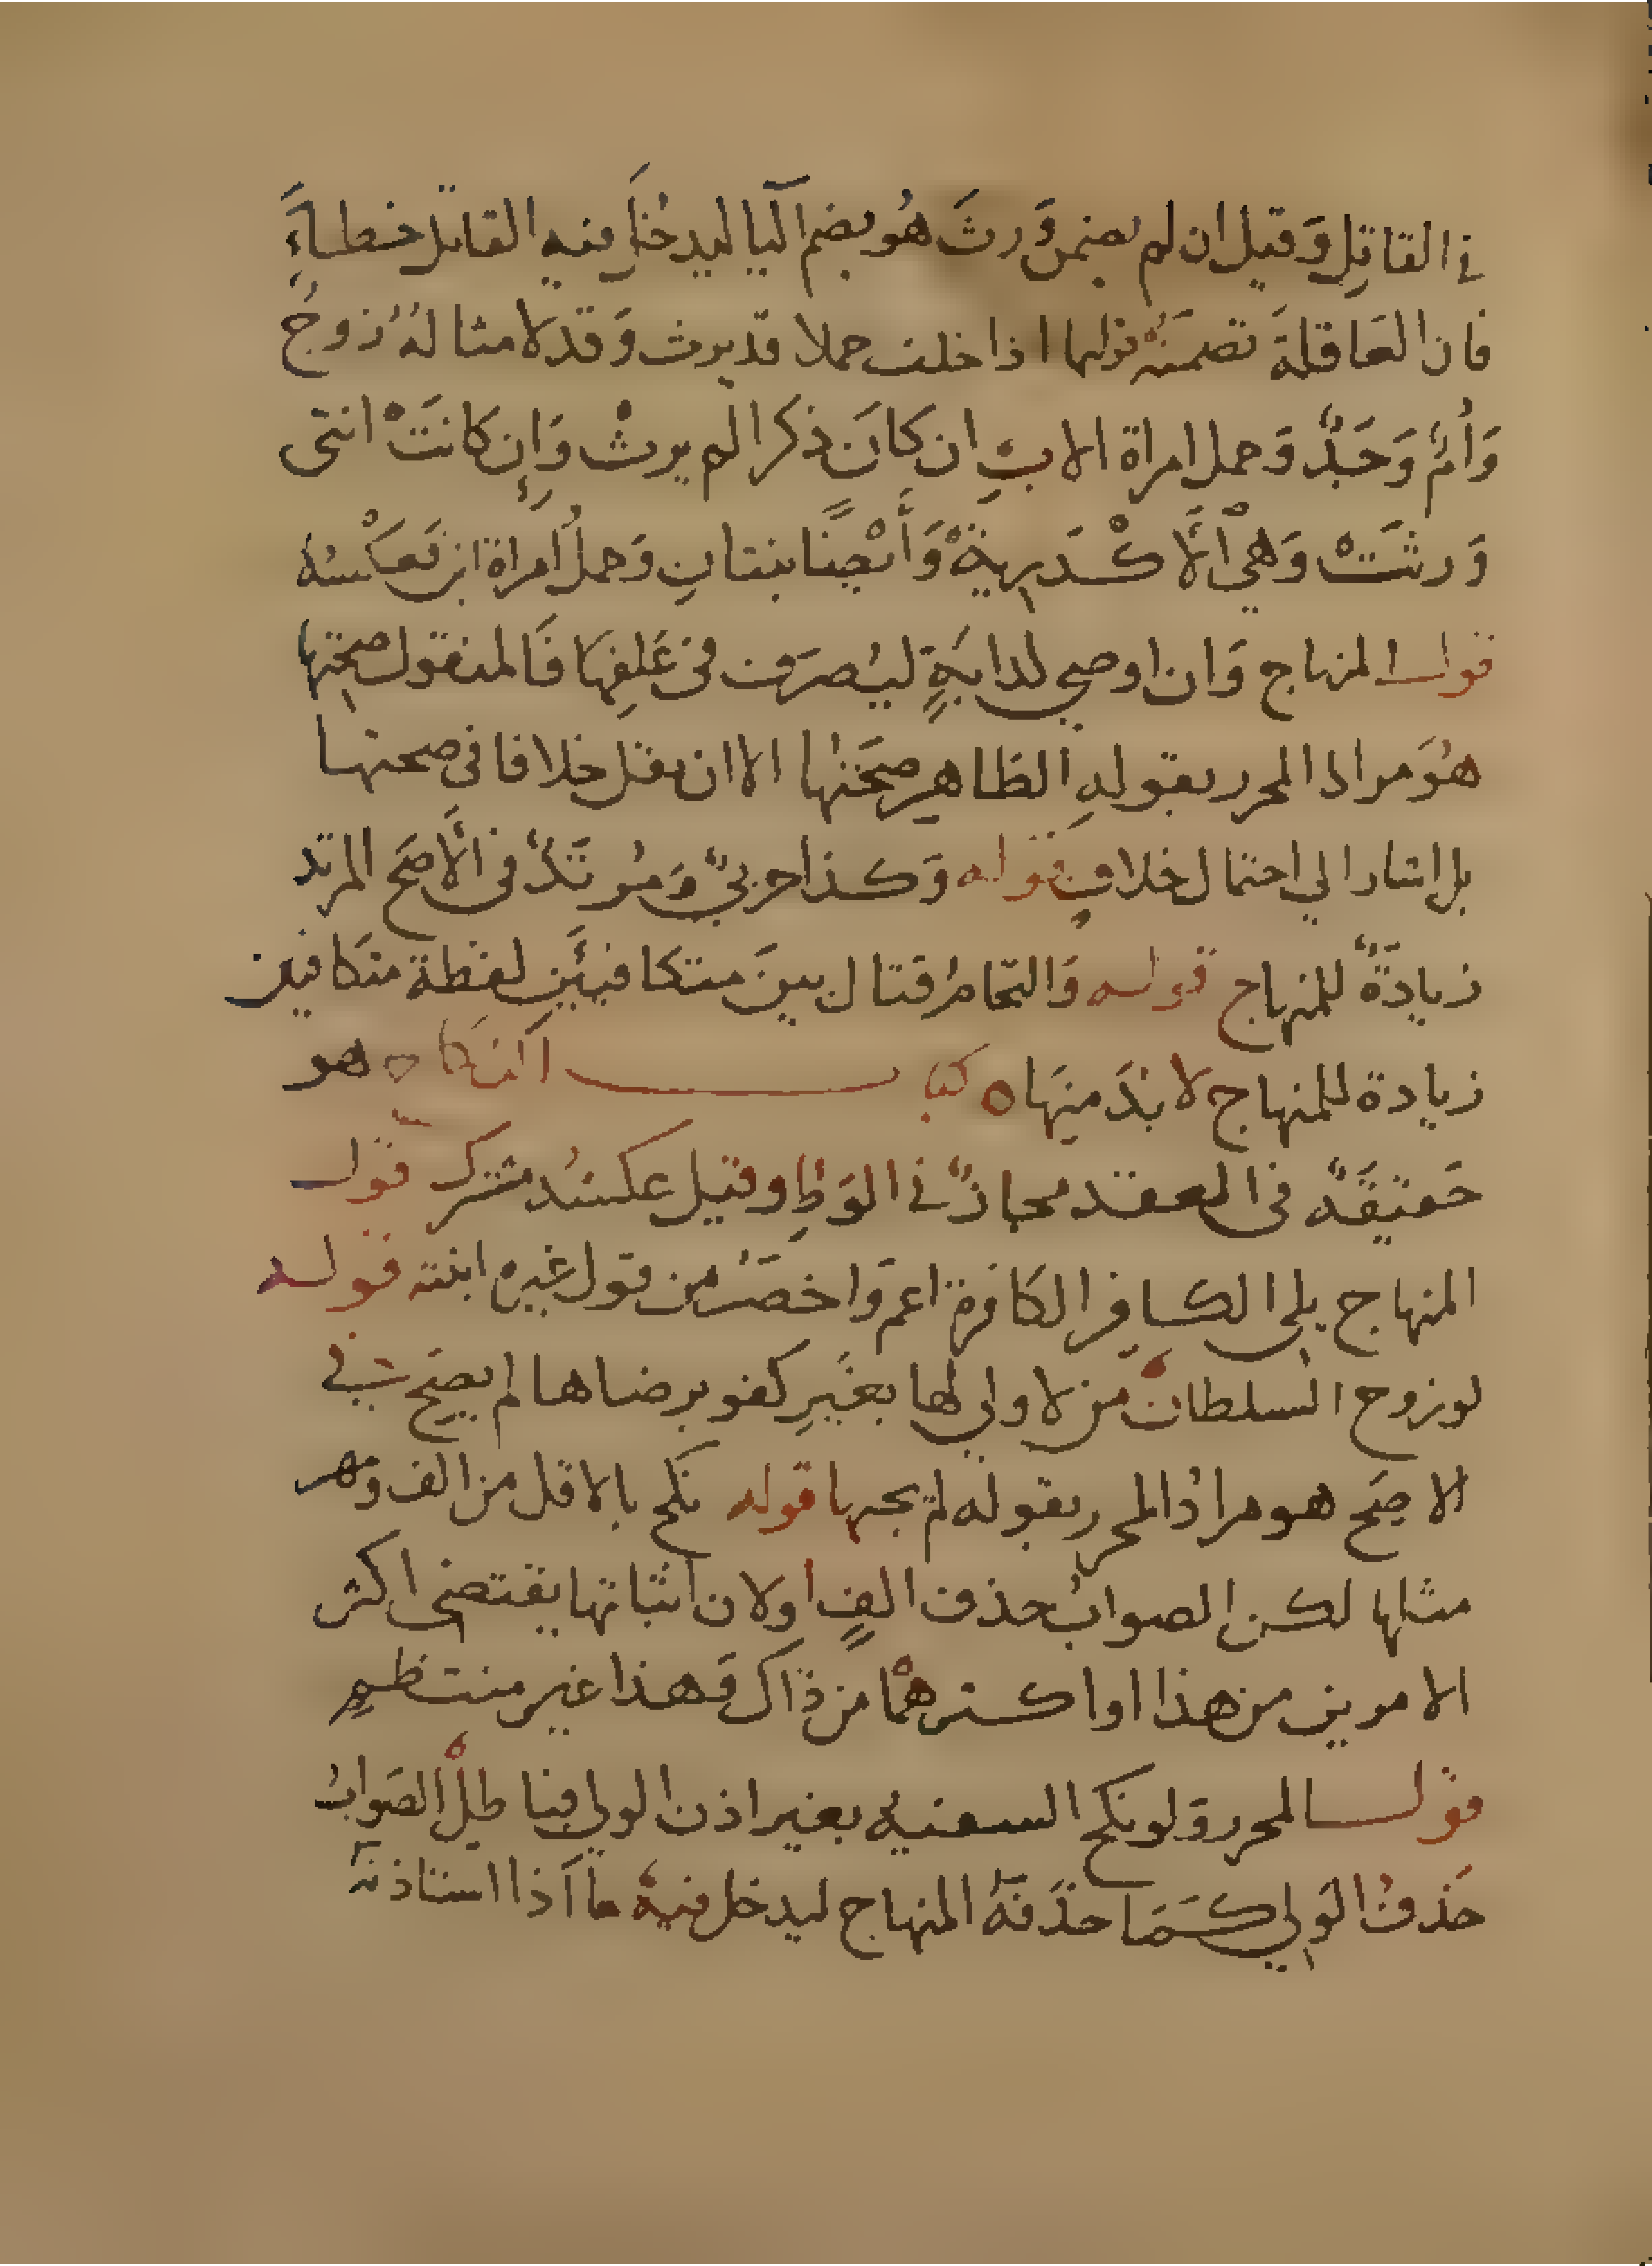 في القاتِل وَقيل ان لم يضمن وَرثَ هُو بضم اليا ليدخُلَ فيه القاتل خطأً
فان العَاقلةَ تضمنَهُ قولهما اذا خلف حملا قد يرث وَقد لا مثالهُ زوجٌ
وَأمٌ وَجَدٌ وَحمل امراة الابِ ان كانَ ذكرا لم يرثْ وَاِن كانَتْ انثى
وَرثَتْ وَهي الْأَكْدَريةْ وَأَيْضًا بنتانِ وَحملُ امراة ابن بعَكْسهُ
قول المنهاج وَان اوصي لدابَةٍ ليُصرَف في عَلِفهَا فَالمنقول صحتها
هوَ مراد المحرر بقولهِ الظاهِر صحَتُها الا ان ينقل خلافا في صحتها
بل اشار الي احتمال خلافٍ قوله وَكذا حربيٌ وَمُرتَدٌ في الأصَح المرتد
زيادَةٌ للمنهاج قوله وَالتحَامُ قتال بينَ متكافئَينِ لفظة متكافين
زيادة للمنهاج لا بُدَ منهَا ه كتاب النكاح هو
حَقيقَةٌ في العقد مجازٌ في الوَطءِ وقيل عكسُه مشترك قول
المنهاج يلي الكافر الكافرة اعم وَاخصَرُ من قول غيره ابنته قوله
لو زوج السلطانُ من لا ولي لها بغَيرِ كفو برضاها لم يصِحَ في
الاصَح هو مرادُ المحرر بقوله لم يجبها قوله نكح بالاقل من الف ومهر
مثلها لكن الصوابُ حذف الفٍ اولان اثباتها يقتضي اكثر
الامرين من هذا او اكثرهُما من ذاك وَهذا غير منتظمٍ
قول المحرر وَلو نكح السفيه بغير اذن الولي فباطلٌ الصَوابُ
حَذفُ الوَلي كَمَا حذَفهُ المنهاج ليدخل فيهْ ما اذا استاذنهَ